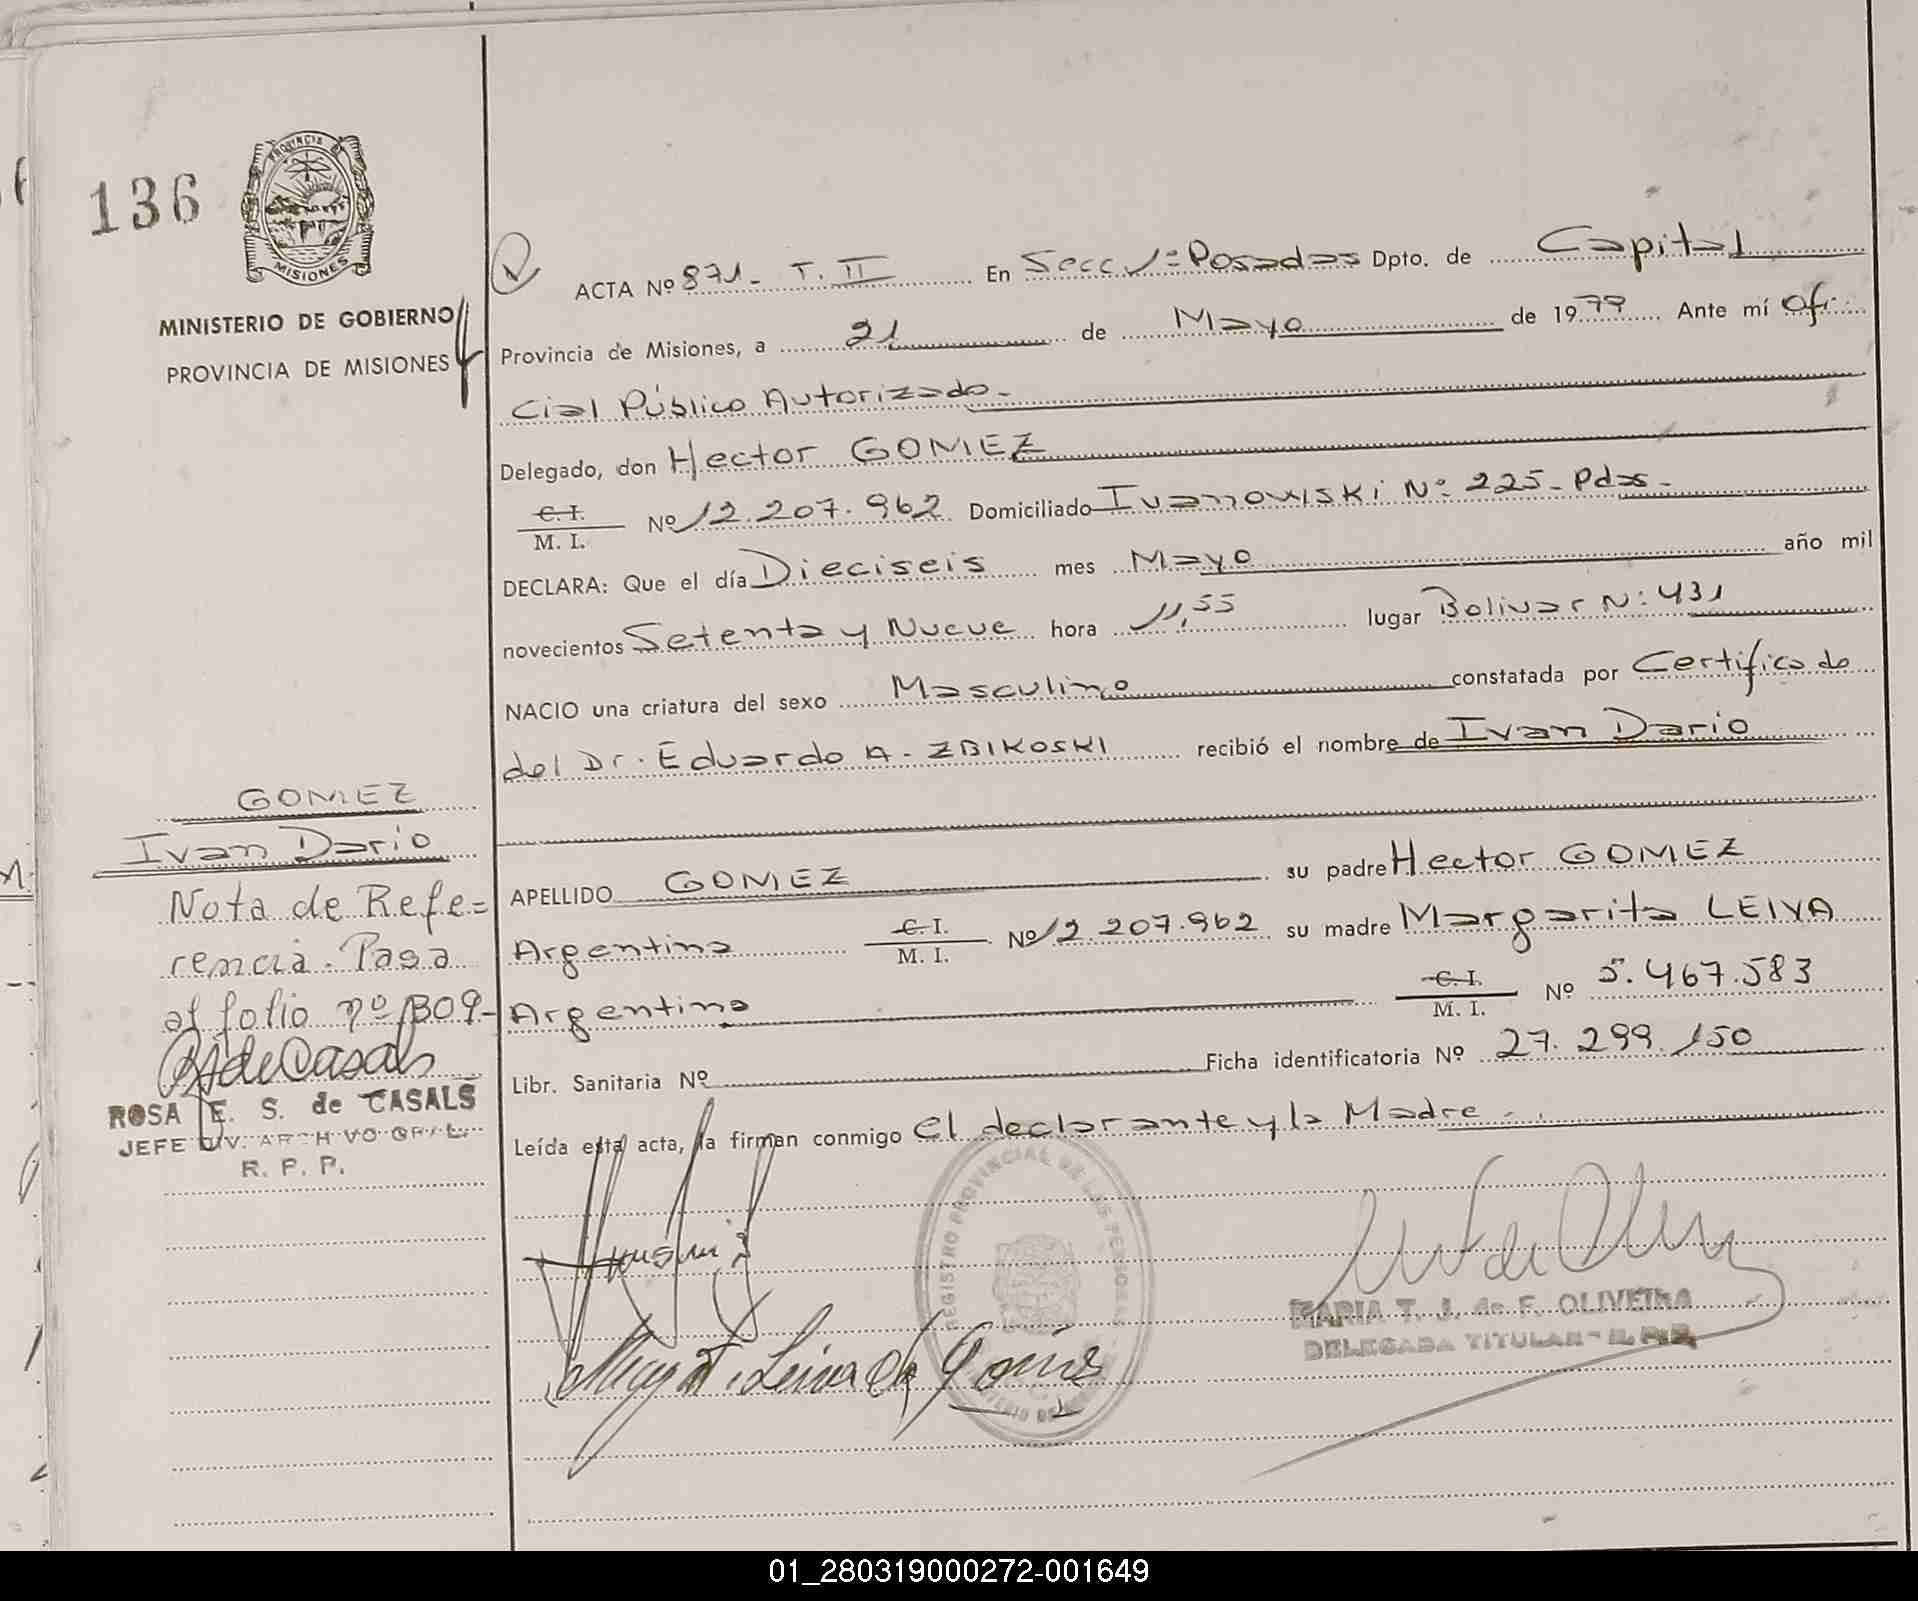 136
PROVINCIA DE
MISIONES
MINISTERIO DE GOBIERNO
PROVINCIA DE MISIONES
ACTA Nº 871- T. II En Secc 1ª Posadas Dpto. de Capital
Provincia de Misiones, a 21 de Mayo de 1979 Ante mí Ofi
cial Público Autorizado.-
Delegado, don Hector GOMEZ
C. I.
M. I. Nº 12.207.962 Domiciliado Ivanowiski Nº 225- Pdas-
DECLARA: Que el día Dieciseis mes Mayo año mil
novecientos Setenta y Nueve hora 11,55 lugar Bolivar Nº 431
NACIO una criatura del sexo Masculino constatada por Certificado
del Dr. Eduardo A. ZBIKOSKI recibió el nombre de Ivan Dario
APELLIDO GOMEZ su padre Hector GOMEZ
Argentino C. I. M. I. Nº 12.207.962 su madre Margarita LEIVA
Argentina C. I. M. I. Nº 5.467.583
Libr. Sanitaria Nº Ficha identificatoria Nº 27.299.150
Leída esta acta, la firman conmigo el declarante y la Madre-.
GOMEZ
Ivan Dario
Nota de Refe=
rencia. Pasa
al folio nº 1309-
RSdeCasals
ROSA E. S. de CASALS
JEFE DIV. ARCHIVO GRAL.
R. P. P.
REGISTRO PROVINCIAL DE LAS PERSONAS
Margt. Leiva de Gomes
MARIA T. J. de F. OLIVEIRA
DELEGADA TITULAR - R. P. P.
01_280319000272-001649